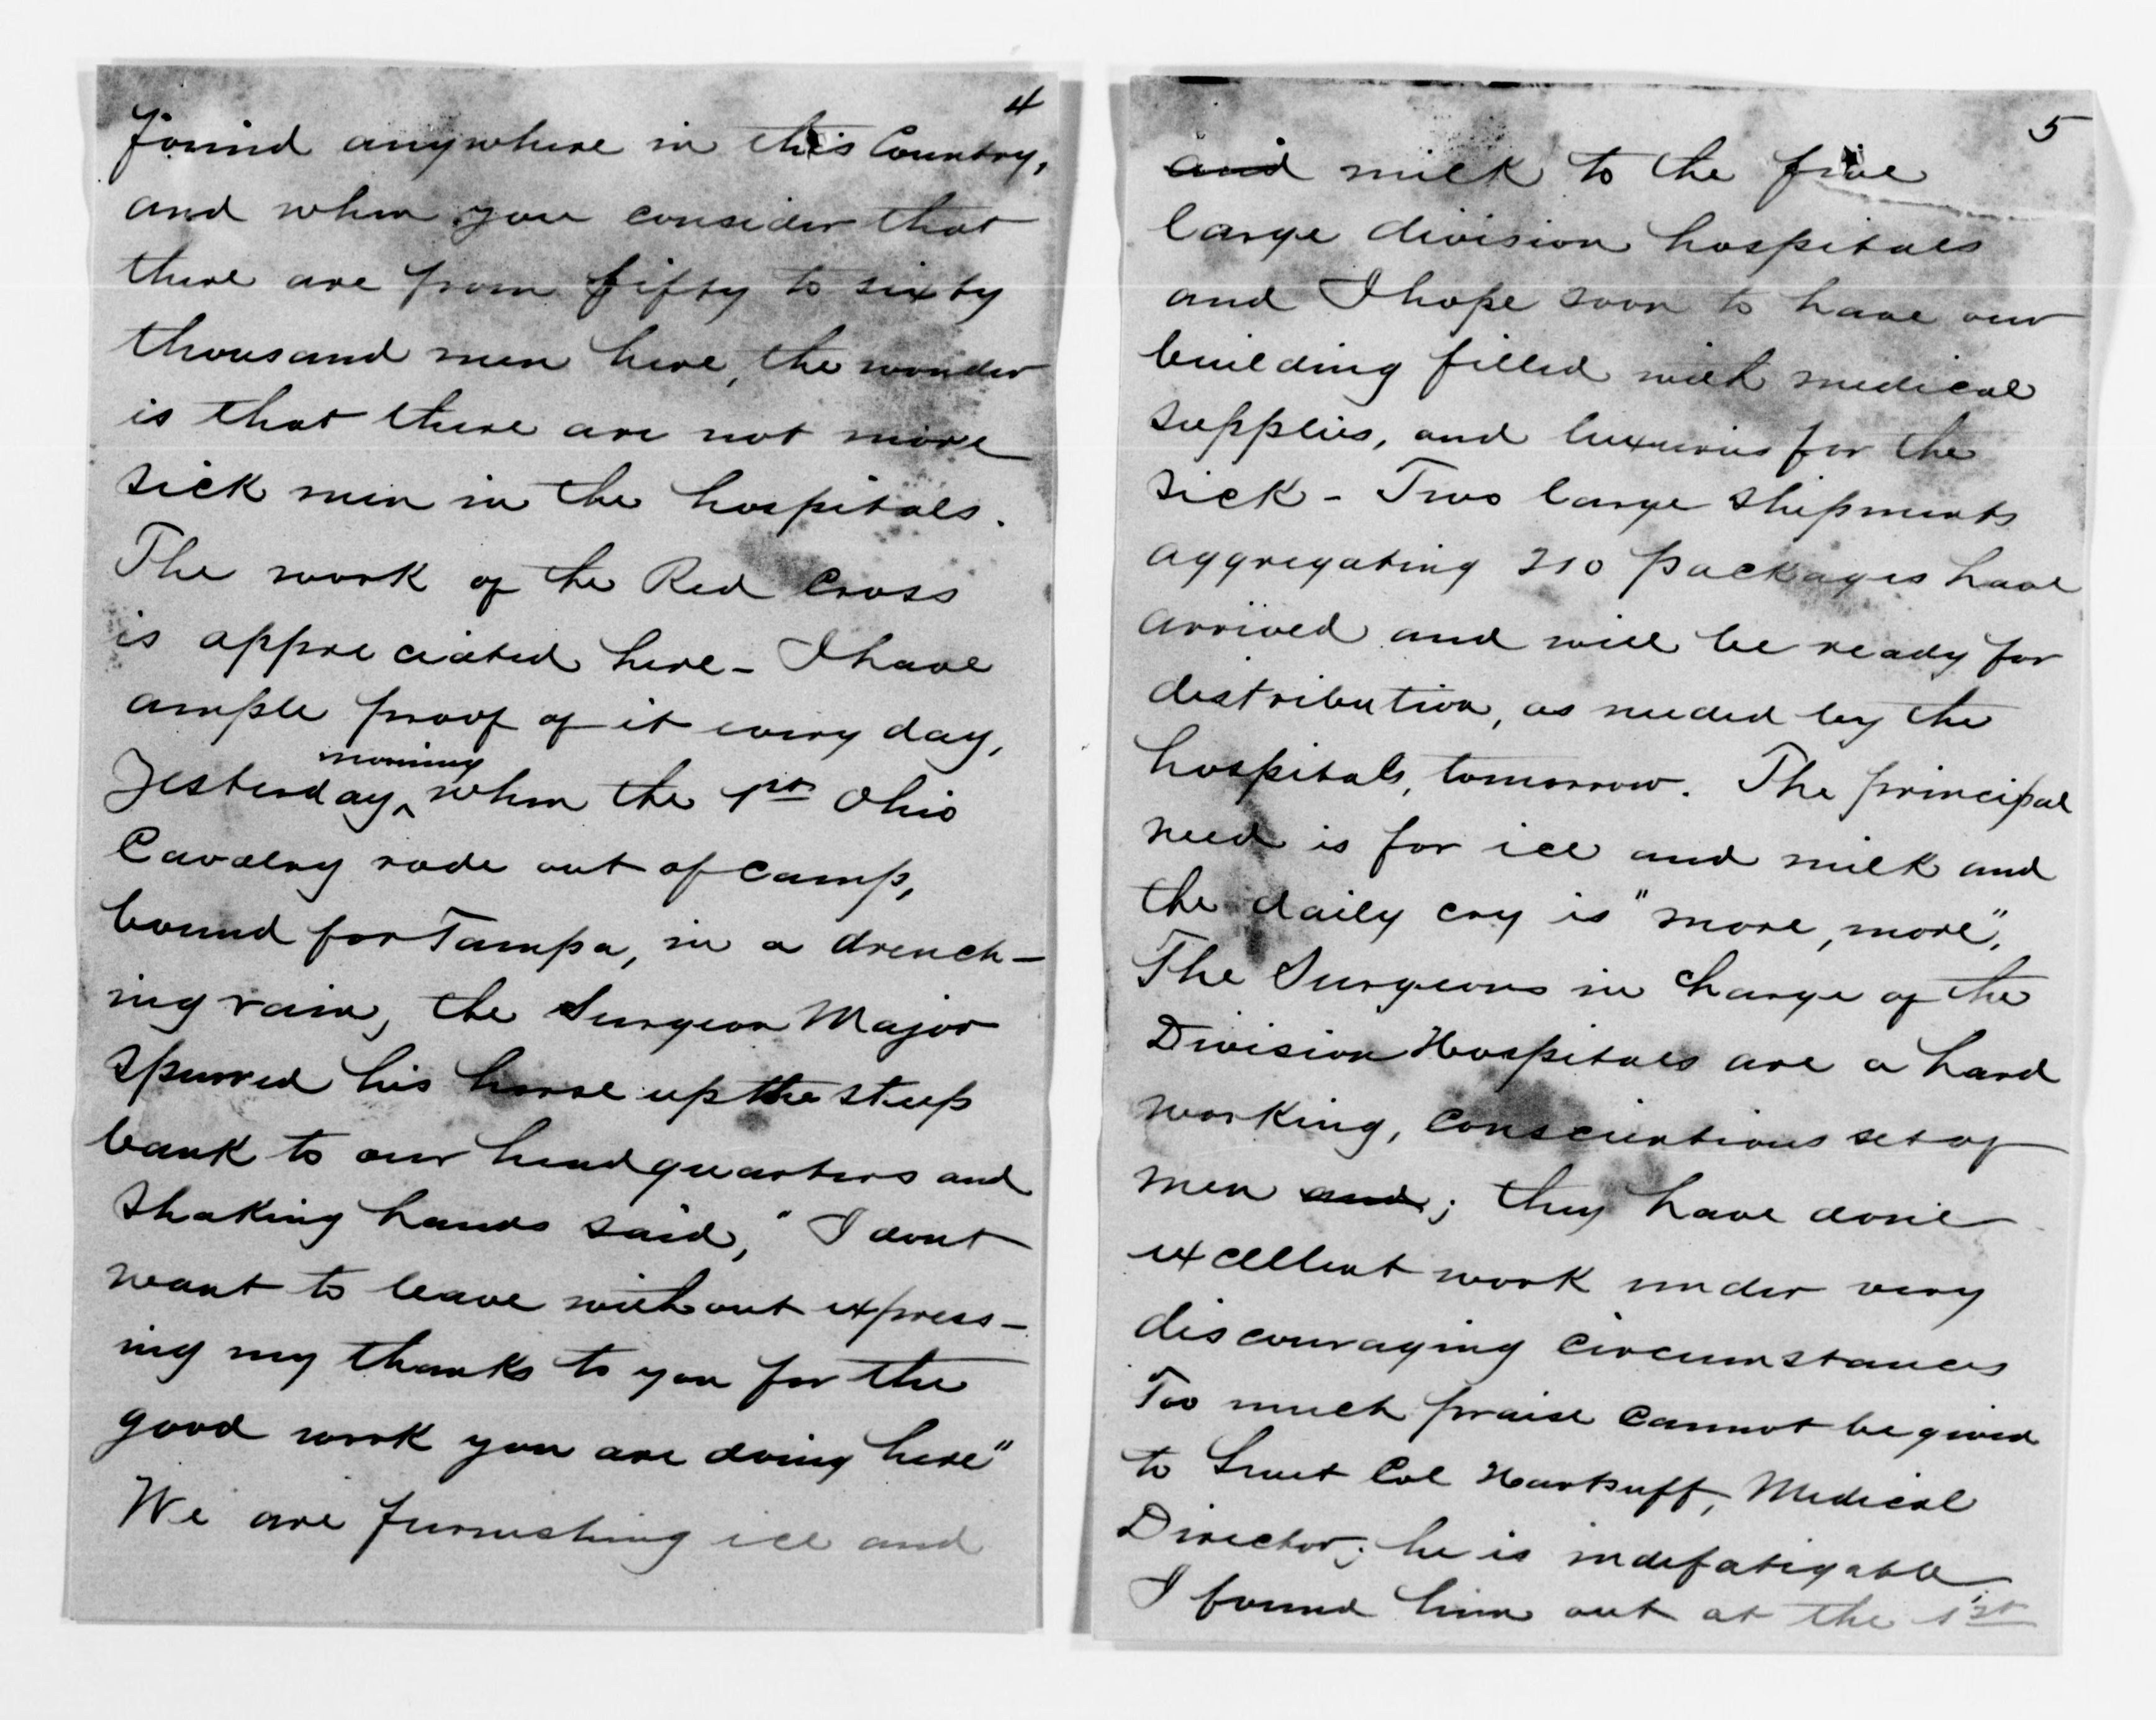 4
found anywhere in this Country,
and when you consider that
there are from fifty to sixty
thousand men here, the wonder
is that there are not more
sick men in the hospitals.
The work of the Red Cross
is appreciated here - I have
ample proof of it every day,
morning
Yesterday ^ when the 1st Ohio
Cavalry rode out of camp,
bound for Tampa, in a drench-
ing rain, the Surgeon Major
spurred his horse up the steep
bank to our headquarters and
shaking hands said, "I dont
want to leave without express-
ing my thanks to you for the
good work you are doing here"
We are furnishing ice and
5
and milk to the five
large division hospitals
and I hope soon to have our
building filled with medical
supplies, and luxuries for the
sick - Two large shipments
aggregating 210 packages have
arrived and will be ready for
distribution, as needed by the
hospitals, tomorrow. The principal
need is for ice and milk and
the daily cry is "more, more".
The Surgeons in charge of the
Division Hospitals are a hard
working, conscientious set of
men and; they have done
excellent work under very
discouraging circumstances
Too much praise cannot be given
to Lieut Col Hartsuff, Medical
Director; he is indefatigable;
I found him out at the 1st